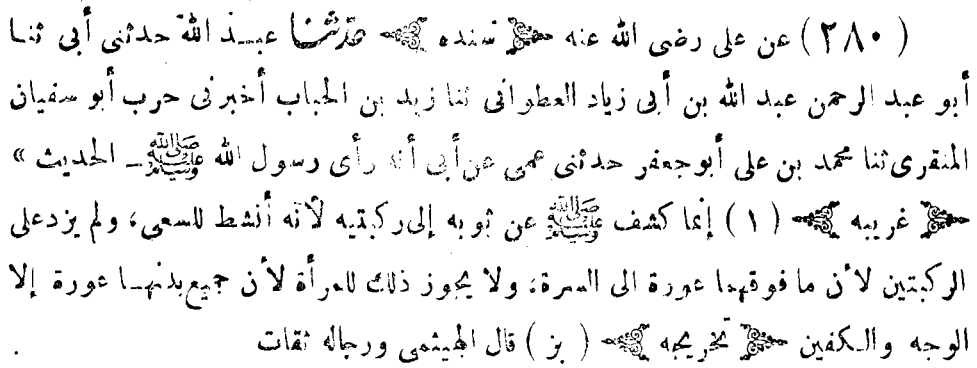 ( ٢٨٠ ) عن على رضى الله عنه ﴿ سنده ﴾ حدّثنا عبد الله حدثنى أبى ثنا
أبو عبد الرحمن عبد الله بن أبى زياد العطوانى ثنا زيد بن الحباب أخبرنى حرب أبو سفيان
المنقرى ثنا محمد بن على أبو جعفر حدثنى عمى عن أبى أنه رأى رسول الله ﷺ ـ الحديث »
﴿ غريبه ﴾ ( ١ ) إنما كشف ﷺ عن ثوبه إلى ركبتيه لأنه أنشط للسعى، ولم يزد على
الركبتين لأن ما فوقهما عورة الى السرة، ولا يجوز ذلك للمرأة لأن جميع بدنها عورة إلا
الوجه والكفين ﴿ تخريجه ﴾ ( بز ) قال الهيثمى ورجاله ثقات .